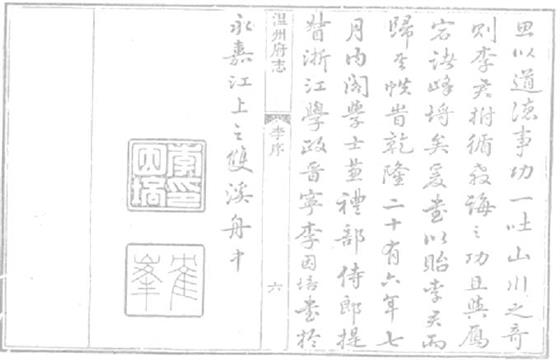 思以道德事功一吐山川之奇
則李君拊循教誨之功且與雁
宕諸峰埒矣爰書以貽李君而
歸其帙旹乾隆二十有六年七
月内閣學士兼禮部侍郎提
督浙江學政晉寧李因培書於
温州府志
李序
六
永嘉江上之雙溪舟中
李印因培
隺峯